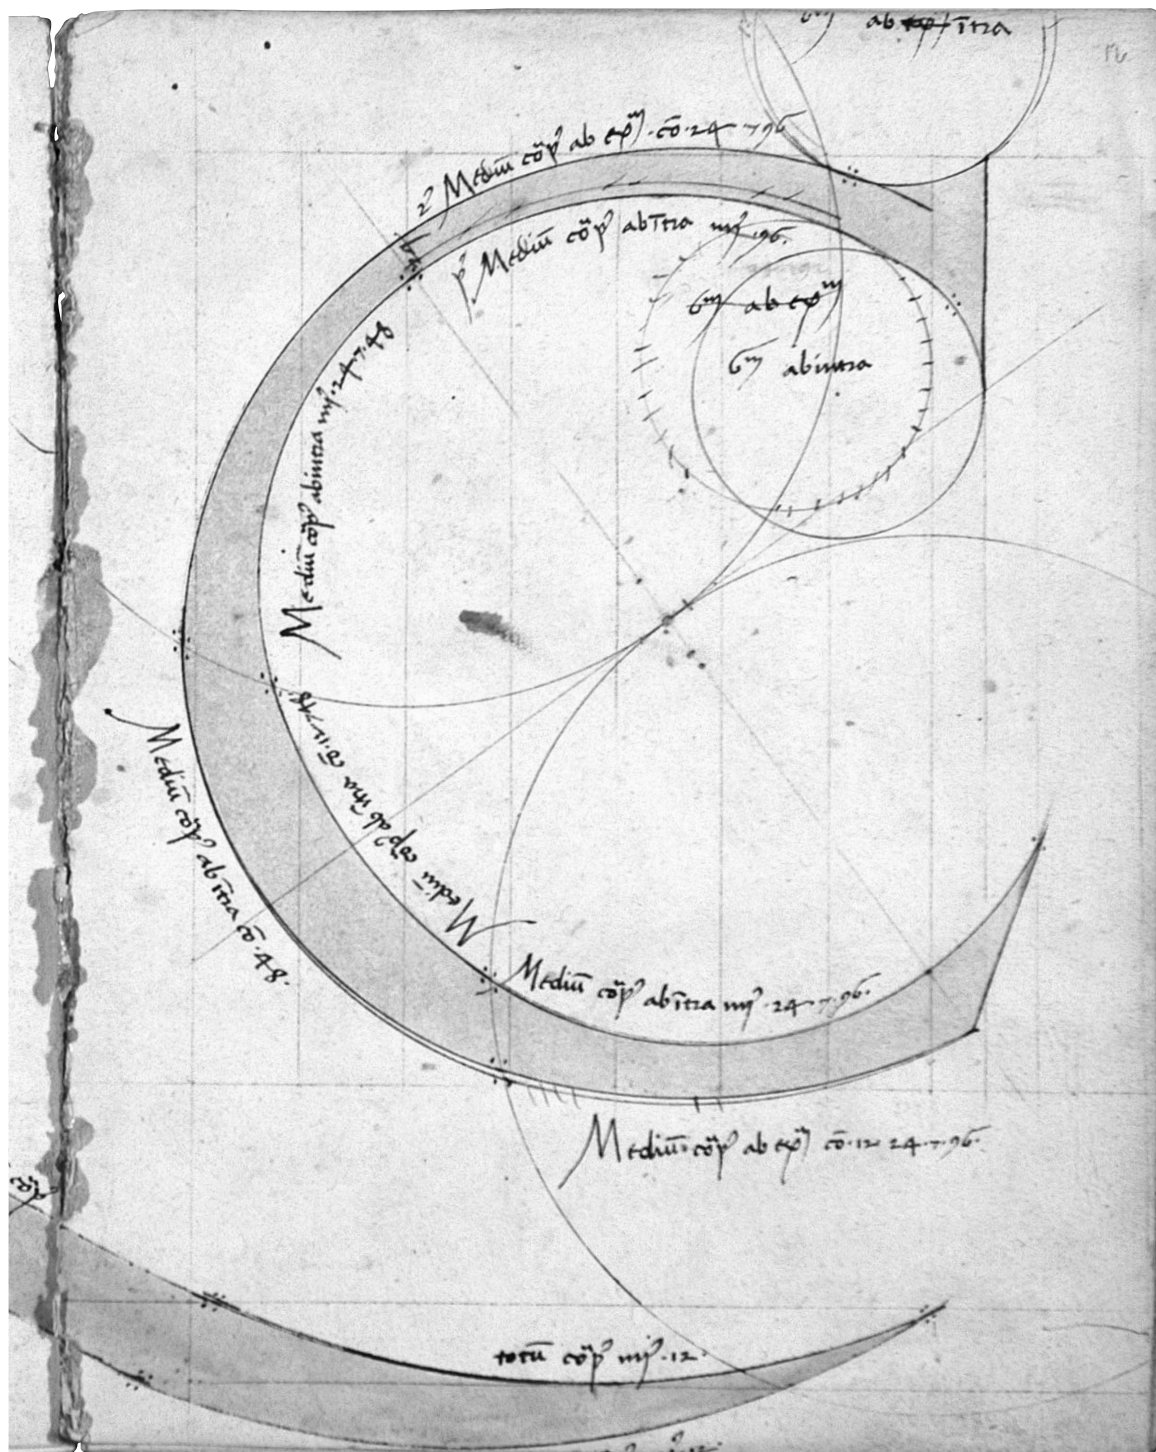 6ᵐ ab int̄ra
2ᵒ Mediū cōp̄ ab exᵐ · cō · 24 · 7 · 96
pᵒ Mediū cōp̄ ab īt̄ra mᵒ · 96 ·
6ᵐ ab exᵐ
6ᵐ abintra
Mediū cōp̄ abintra mᵒ · 24 · 7 · 48
Mediū cōp̄ ab īt̄ra cō · 12 · 7 · 48
Mediū cōp̄ ab īt̄ra cō · 48 ·
Mediū cōp̄ ab īt̄ra mᵒ · 24 · 7 · 96 ·
Mediū cōp̄ ab exᵐ cō · 12 · 24 · 7 · 96 ·
totū cōp̄ mᵒ · 12 ·